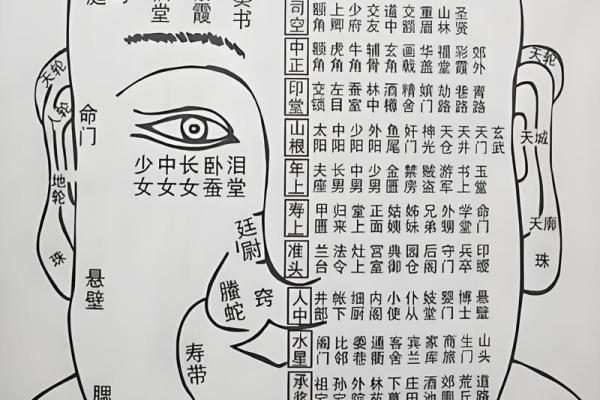 司空 额角 上卿 少府 交友 道中 交额 重眉 山林 圣贤
中正 额角 虎角 牛角 辅骨 玄角 画戟 华盖 福堂 彩霞 郊外
印堂 交锁 左目 蚕室 林中 酒樽 精舍 嫔门 劫路 巷路 青路
山根 太阳 中阳 少阳 外阳 鱼尾 奸门 神光 天仓 天井 天门 玄武
年上 夫座 长男 中男 少男 金匮 禁房 贼盗 游军 书上 玉堂
寿上 甲匮 归来 堂上 正面 姑姨 姊妹 兄弟 外甥 学堂 命门
准头 兰台 法令 灶上 宫室 典御 园仓 后阁 守门 兵卒 印绶
人中 井部 帐下 细厨 内阁 小使 仆从 妓堂 婴门 博士 悬壁
水星 阁门 比邻 委巷 通衢 客舍 宾兰 家库 商旅 生门 山头
承 祖 孙 外院 林 下 庄田 酒池 郊 荒丘 道路
堂 霞 书
天轮
人轮
地轮
珠
命门
少女 中女 长女 卧蚕 泪堂
廷尉
螣蛇
窍
悬壁
寿带
天轮
天城
天廓
珠